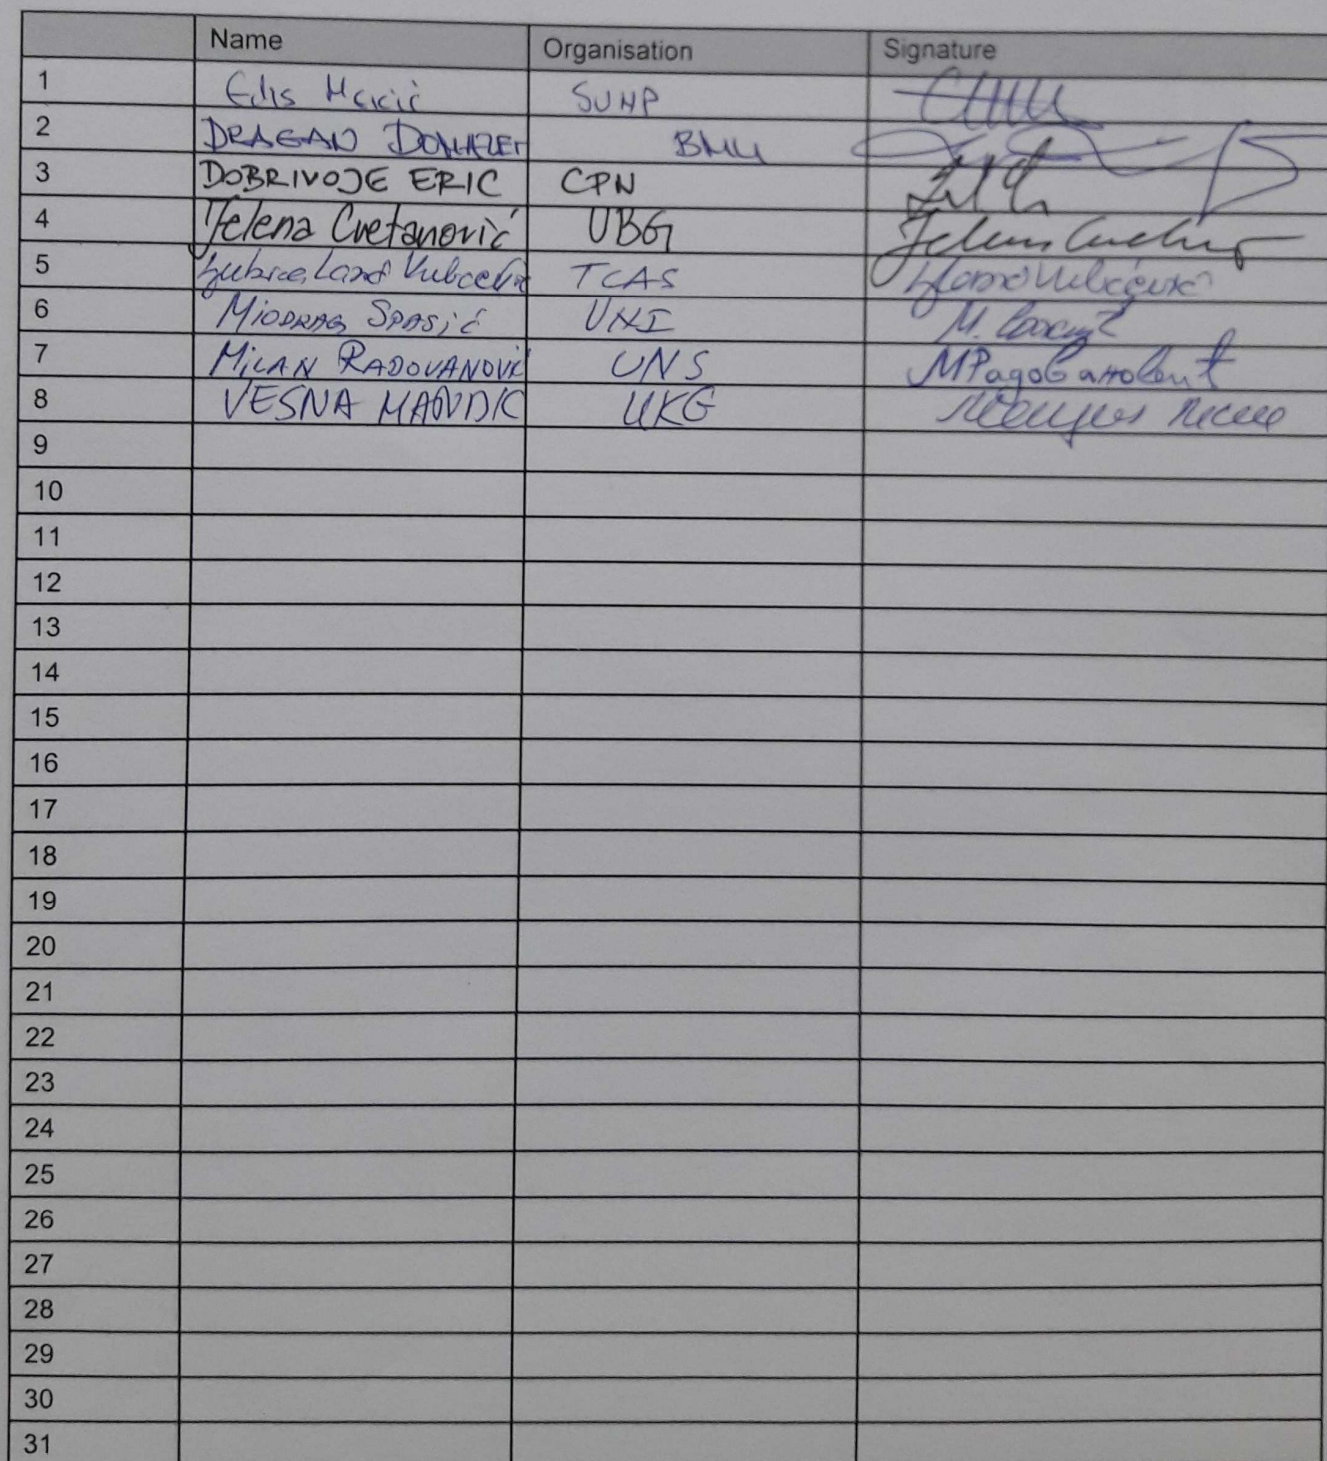 Name Organisation Signature
1 Edis SUNP
2 DRAGAN DOMAZET BMU
3 DOBRIVOJE ERIC CPN
4 Jelena Cvetanović UBG
5 TCAS
6 MIODRAG SPASIĆ UNI M.
7 MILAN RADOVANOVIĆ UNS МРадовановић
8 VESNA MANDIC UKG
9
10
11
12
13
14
15
16
17
18
19
20
21
22
23
24
25
26
27
28
29
30
31